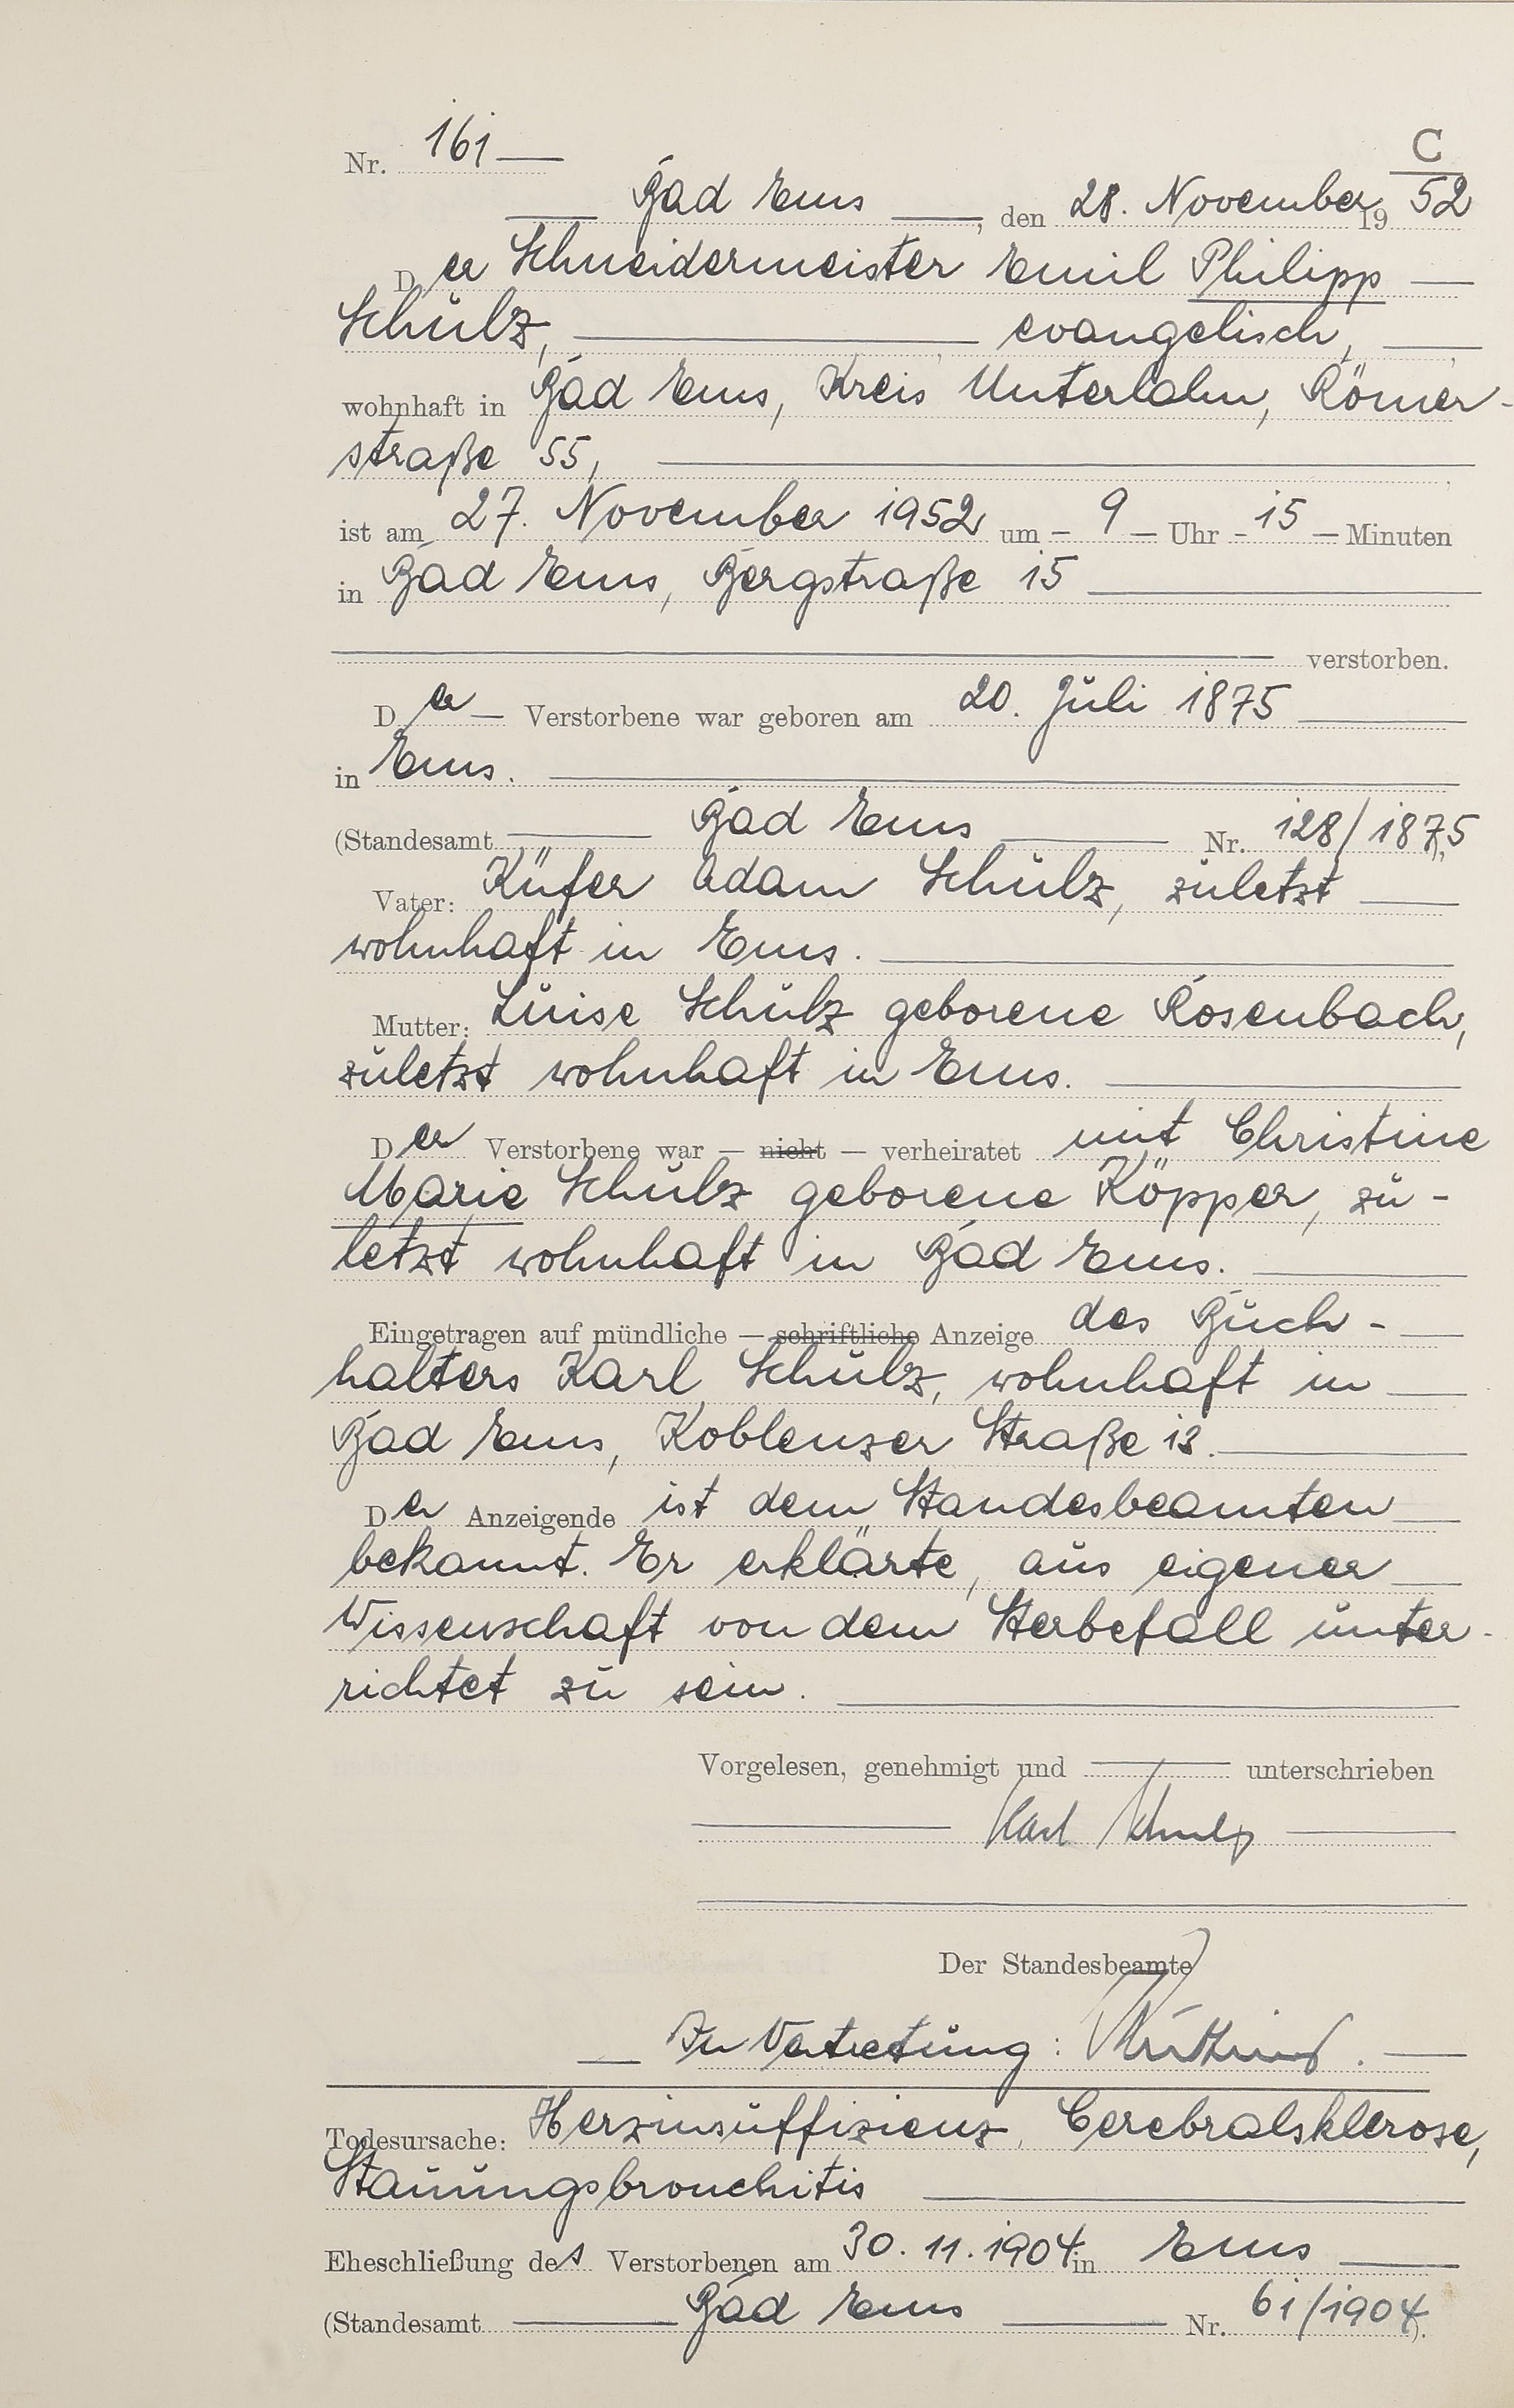 C
Nr. 161
Bad Ems, den 28. November 1952
Der Schneidermeister Emil Philipp
Schulz, evangelisch,
wohnhaft in Bad Ems, Kreis Unterlahn, Römer-
straße 55,
ist am 27. November 1952 um - 9 - Uhr - 15 - Minuten
in Bad Ems, Bergstraße 15
verstorben.
Der Verstorbene war geboren am 20. Juli 1875
in Ems.
(Standesamt Bad Ems Nr. 128/1875).
Vater: Küfer Adam Schulz, zuletzt
wohnhaft in Ems.
Mutter: Luise Schulz geborene Rosenbach,
zuletzt wohnhaft in Ems.
Der Verstorbene war — nicht — verheiratet mit Christine
Marie Schulz geborene Köpper, zu-
letzt wohnhaft in Bad Ems.
Eingetragen auf mündliche — schriftliche Anzeige des Buch-
halters Karl Schulz, wohnhaft in
Bad Ems, Koblenzer Straße 13.
Der Anzeigende ist dem Standesbeamten
bekannt. Er erklärte, aus eigener
Wissenschaft von dem Sterbefall unter-
richtet zu sein.
Vorgelesen, genehmigt und unterschrieben
Karl Schulz
Der Standesbeamte
In Vertretung:
Todesursache: Herzinsuffizienz, Cerebralsklerose,
Stauungsbronchitis
Eheschließung des Verstorbenen am 30. 11. 1904 in Ems
(Standesamt Bad Ems Nr. 61/1904).